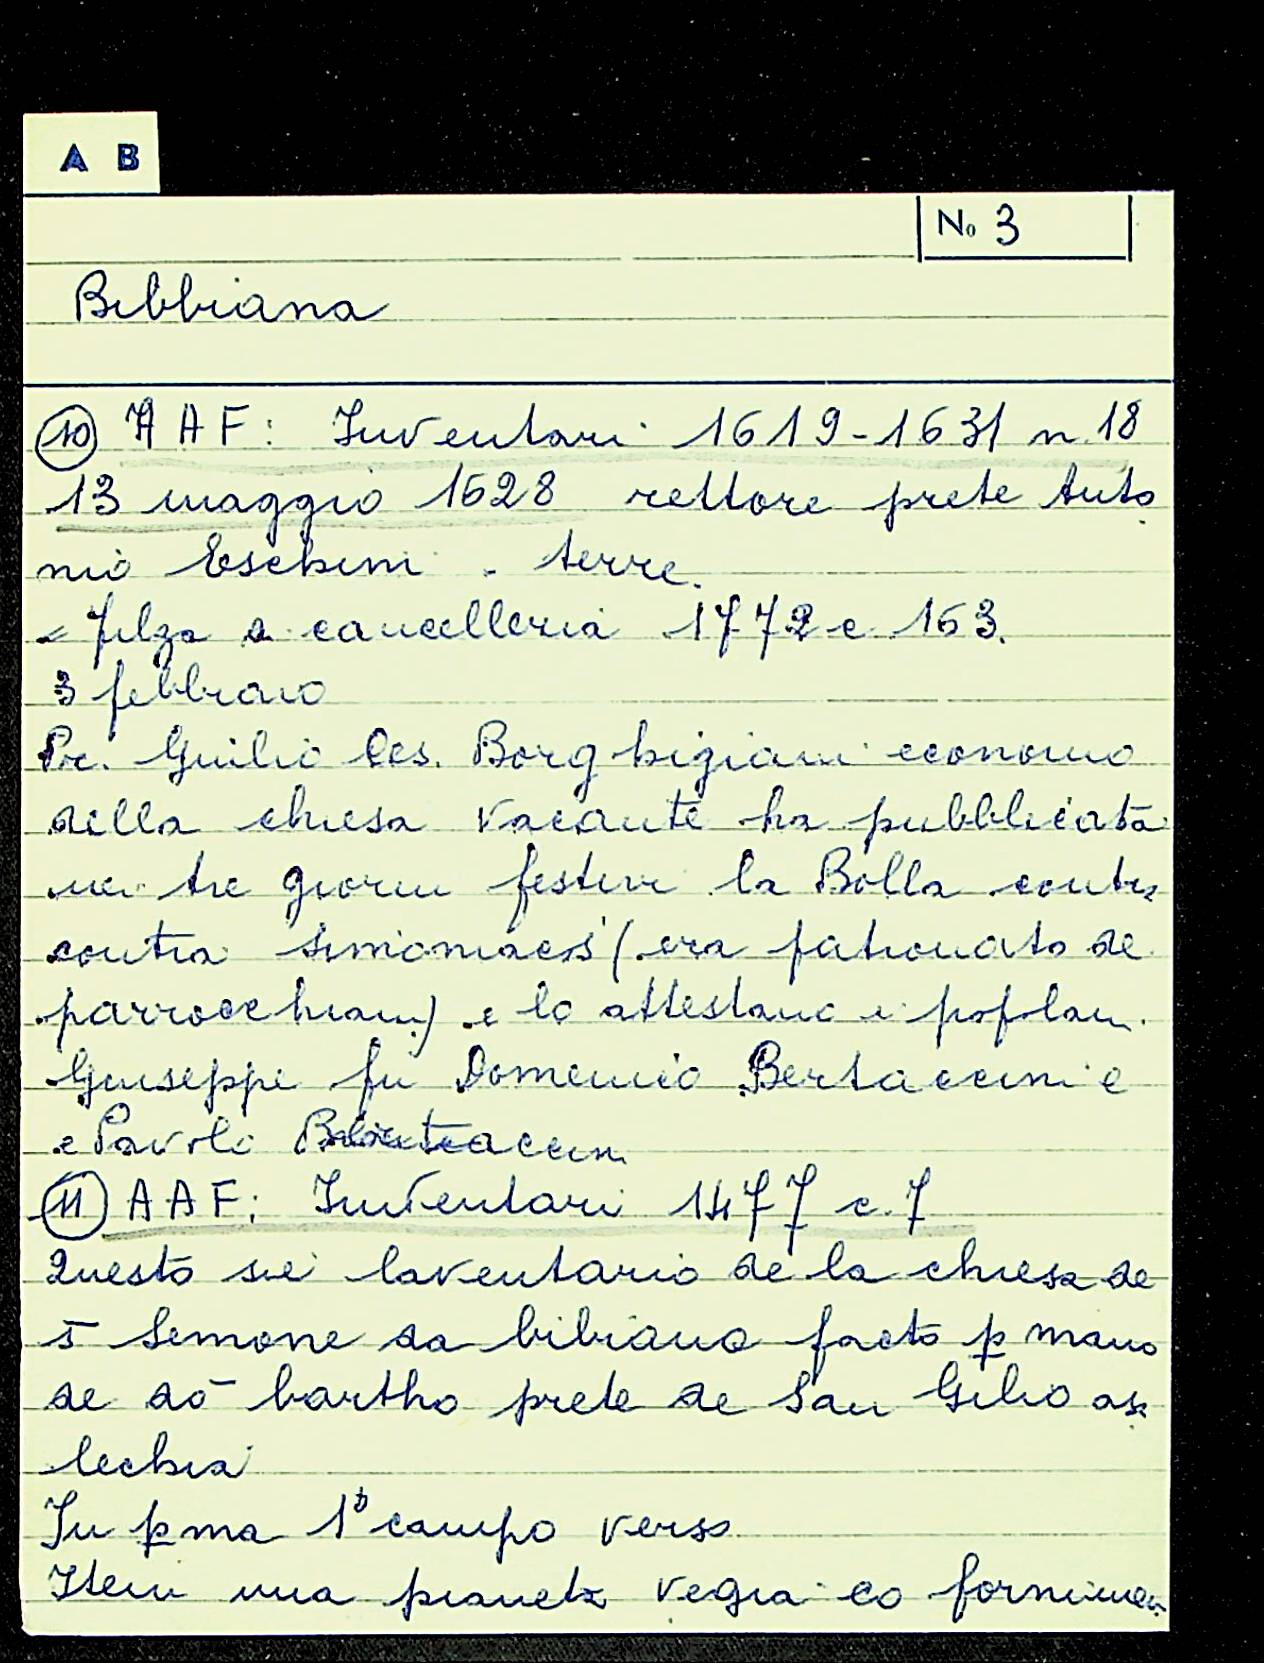 A B
No 3
Bibbiana
10 A A F: Inventari 1619-1631 n. 18
13 maggio 1628 rettore prete Anto
nio Eschini - terre.
= filza cancelleria 1772 c 163.
3 febbraio
Pr. Giulio Ces. Borghigiani economo
della chiesa vacante ha pubblicata
nei tre giorni festivi la Bolla contra
contra simoniacos (era patronato de
parrocchiani) e lo attestano i popolani
Giuseppe fu Domenico Bertaccini e
e Pavolo Bertaccini
11 A A F: Inventari 1477 c. 7
Questo sie laventario de la chiesa de
s Semone da bibiano facto p mano
de do bartho prete de San Gilio
In pma 1º campo verso
Item una pianeta vegia co fornimen